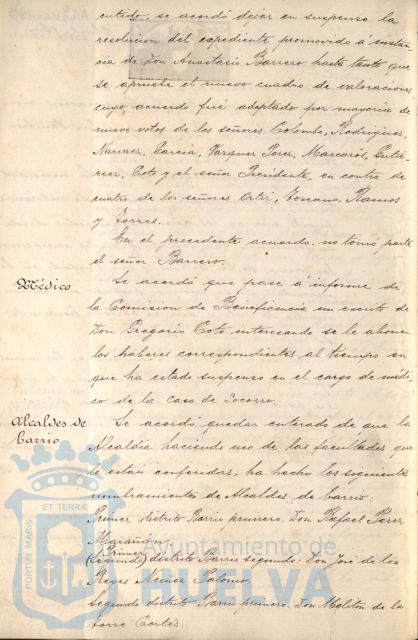 cutido, se acordó dejar en suspenso la
resolucion del expediente promovido á instan
cia de Don Anastasio Barrero hasta tanto que
se apruebe el nuevo cuadro de valoraciones
cuyo acuerdo fué adoptado por mayoria de
nueve votos de los señores Colombo, Rodriguez,
Narvaez, Garcia, Vazquez Perez, Mascarós, Gutié-
rrez, Coto y el señor Presidente, en contra de
cuatro de los señores Ortiz, Toscano, Ramos
y Torres.
En el precedente acuerdo no tomó parte
el señor Barrero.
Médico
Se acordó que pase á informe de
la Comision de Beneficencia un escrito de
Don Gregorio Coto interesando se le abonen
los haberes correspondientes al tiempo en
que ha estado suspenso en el cargo de médi
co de la Casa de Socorro.
Alcaldes de
barrio
Se acordó quedar enterado de que la
Alcaldia haciendo uso de las facultades que
le estan conferidas, ha hecho los siguientes
nombramientos de Alcaldes de barrio:
Primer distrito Barrio primero, Don Rafael Perez
Marañon
Primer
(Segundo) distrito Barrio segundo: Don José de los
Reyes Palomo.
Segundo distrito Barrio primero, Don Meliton de la
Torre Cortés.
PORTUS MARIS ET TERRÆ
Ayuntamiento de
HUELVA